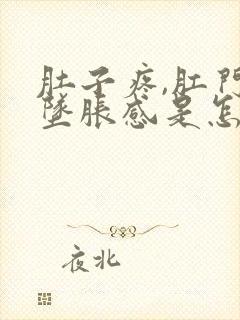 肚子疼,肛门
坠胀感是怎
夜北